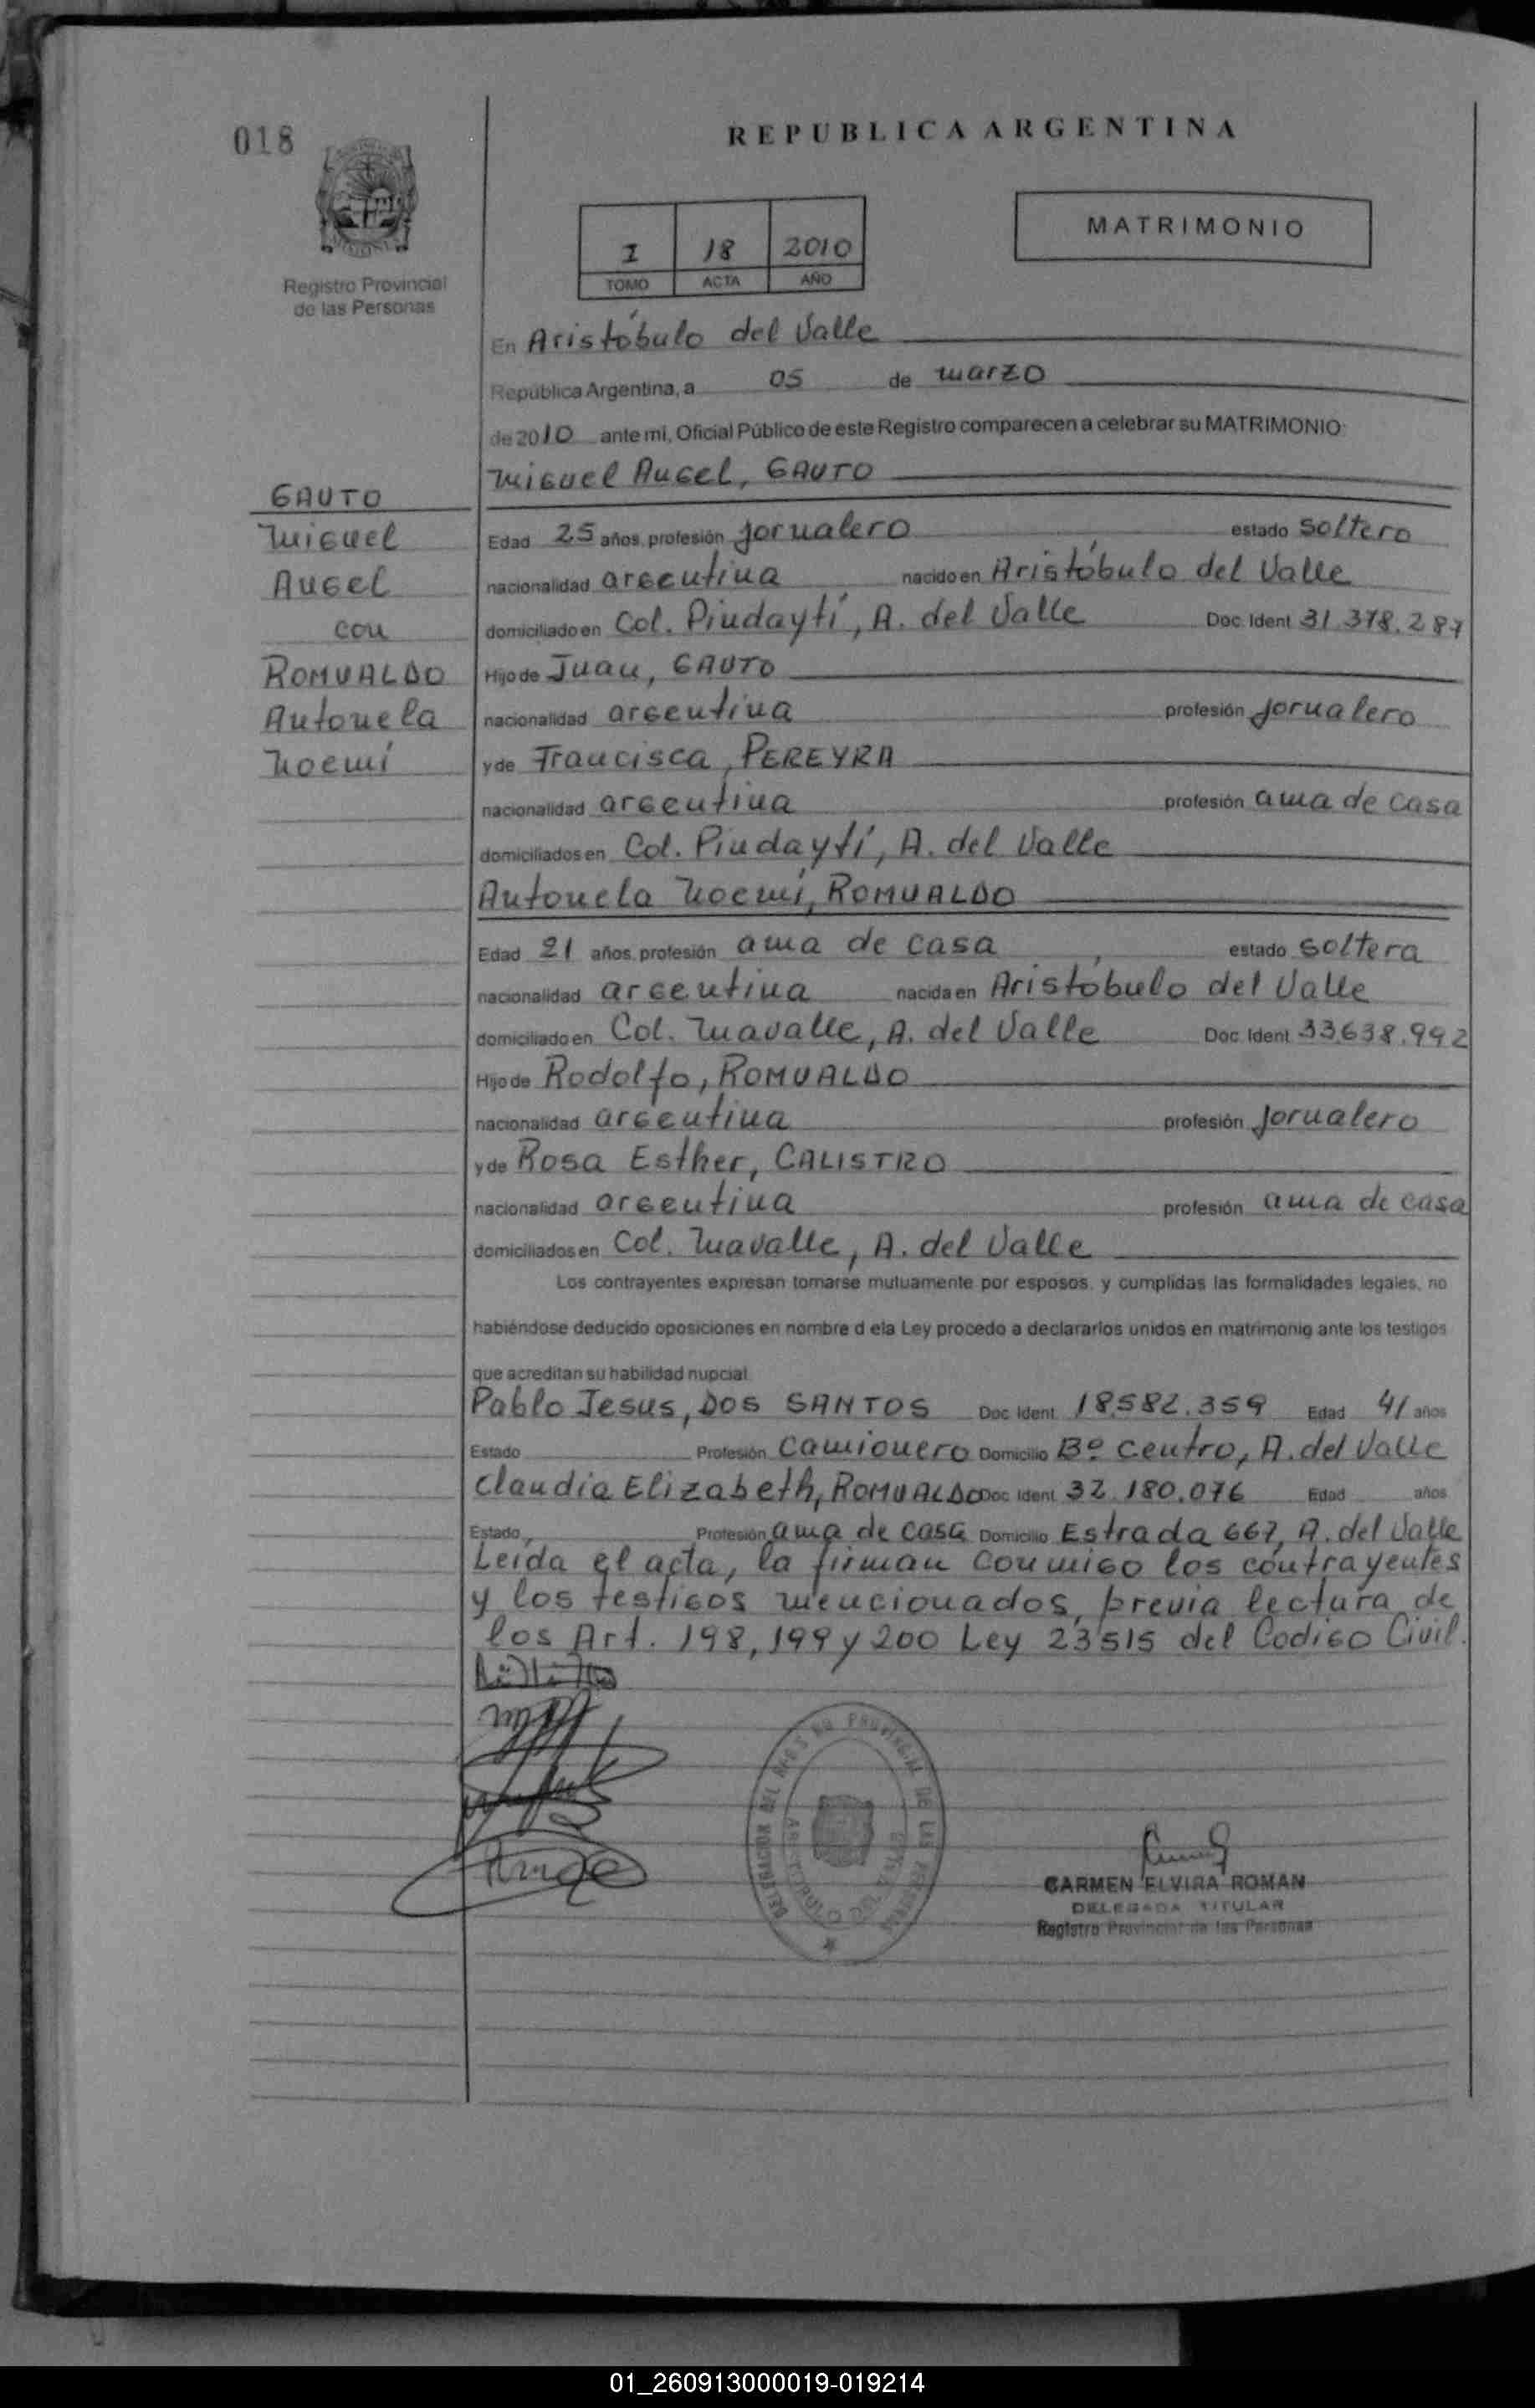 018
REPUBLICA ARGENTINA
MATRIMONIO
I 18 2010
TOMO ACTA AÑO
Registro Provincial
de las Personas
En Aristóbulo del Valle
República Argentina, a 05 de marzo
de 2010 ante mi, Oficial Público de este Registro comparecen a celebrar su MATRIMONIO:
Miguel Angel, GAUTO
GAUTO
Miguel
Angel
con
ROMUALDO
Antonela
Noemí
Edad 25 años, profesión jornalero estado soltero
nacionalidad argentina nacido en Aristóbulo del Valle
domiciliado en Col. Pindaytí, A. del Valle Doc. Ident. 31.378.287
Hijo de Juan, GAUTO
nacionalidad argentina profesión jornalero
y de Francisca, PEREYRA
nacionalidad argentina profesión ama de casa
domiciliados en Col. Pindaytí, A. del Valle
Antonela Noemí, ROMUALDO
Edad 21 años, profesión ama de casa estado soltera
nacionalidad argentina nacida en Aristóbulo del Valle
domiciliado en Col. Mavalle, A. del Valle Doc. Ident. 33.638.992
Hijo de Rodolfo, ROMUALDO
nacionalidad argentina profesión jornalero
y de Rosa Esther, CALISTRO
nacionalidad argentina profesión ama de casa
domiciliados en Col. Mavalle, A. del Valle
Los contrayentes expresan tomarse mutuamente por esposos, y cumplidas las formalidades legales, no
habiéndose deducido oposiciones en nombre d ela Ley procedo a declararlos unidos en matrimonio ante los testigos
que acreditan su habilidad nupcial
Pablo Jesus, DOS SANTOS Doc. Ident. 18.582.359 Edad 41 años
Estado Profesión Camionero Domicilio Bº Centro, A. del Valle
Claudia Elizabeth, ROMUALDO Doc. Ident. 32.180.076 Edad años
Estado Profesión ama de casa Domicilio Estrada 667, A. del Valle
Leída el acta, la firman conmigo los contrayentes
y los testigos mencionados, previa lectura de
los Art. 198, 199 y 200 Ley 23515 del Codigo Civil.
CARMEN ELVIRA ROMAN
DELEGADA TITULAR
Registro Provincial de las Personas
01_260913000019-019214